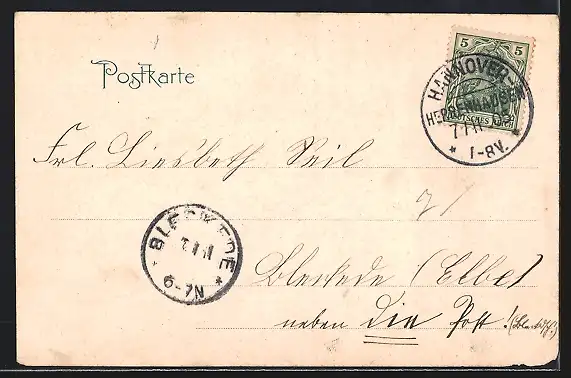 Postkarte
5 5
DEUTSCHES REICH
HANNOVER-
HERRENHAUSEN
7.7.11
* 7-8V.
Frl. Liesbeth Seil
BLECKEDE
7.11
6-7N *
Bleckede (Elbe)
neben die Post!